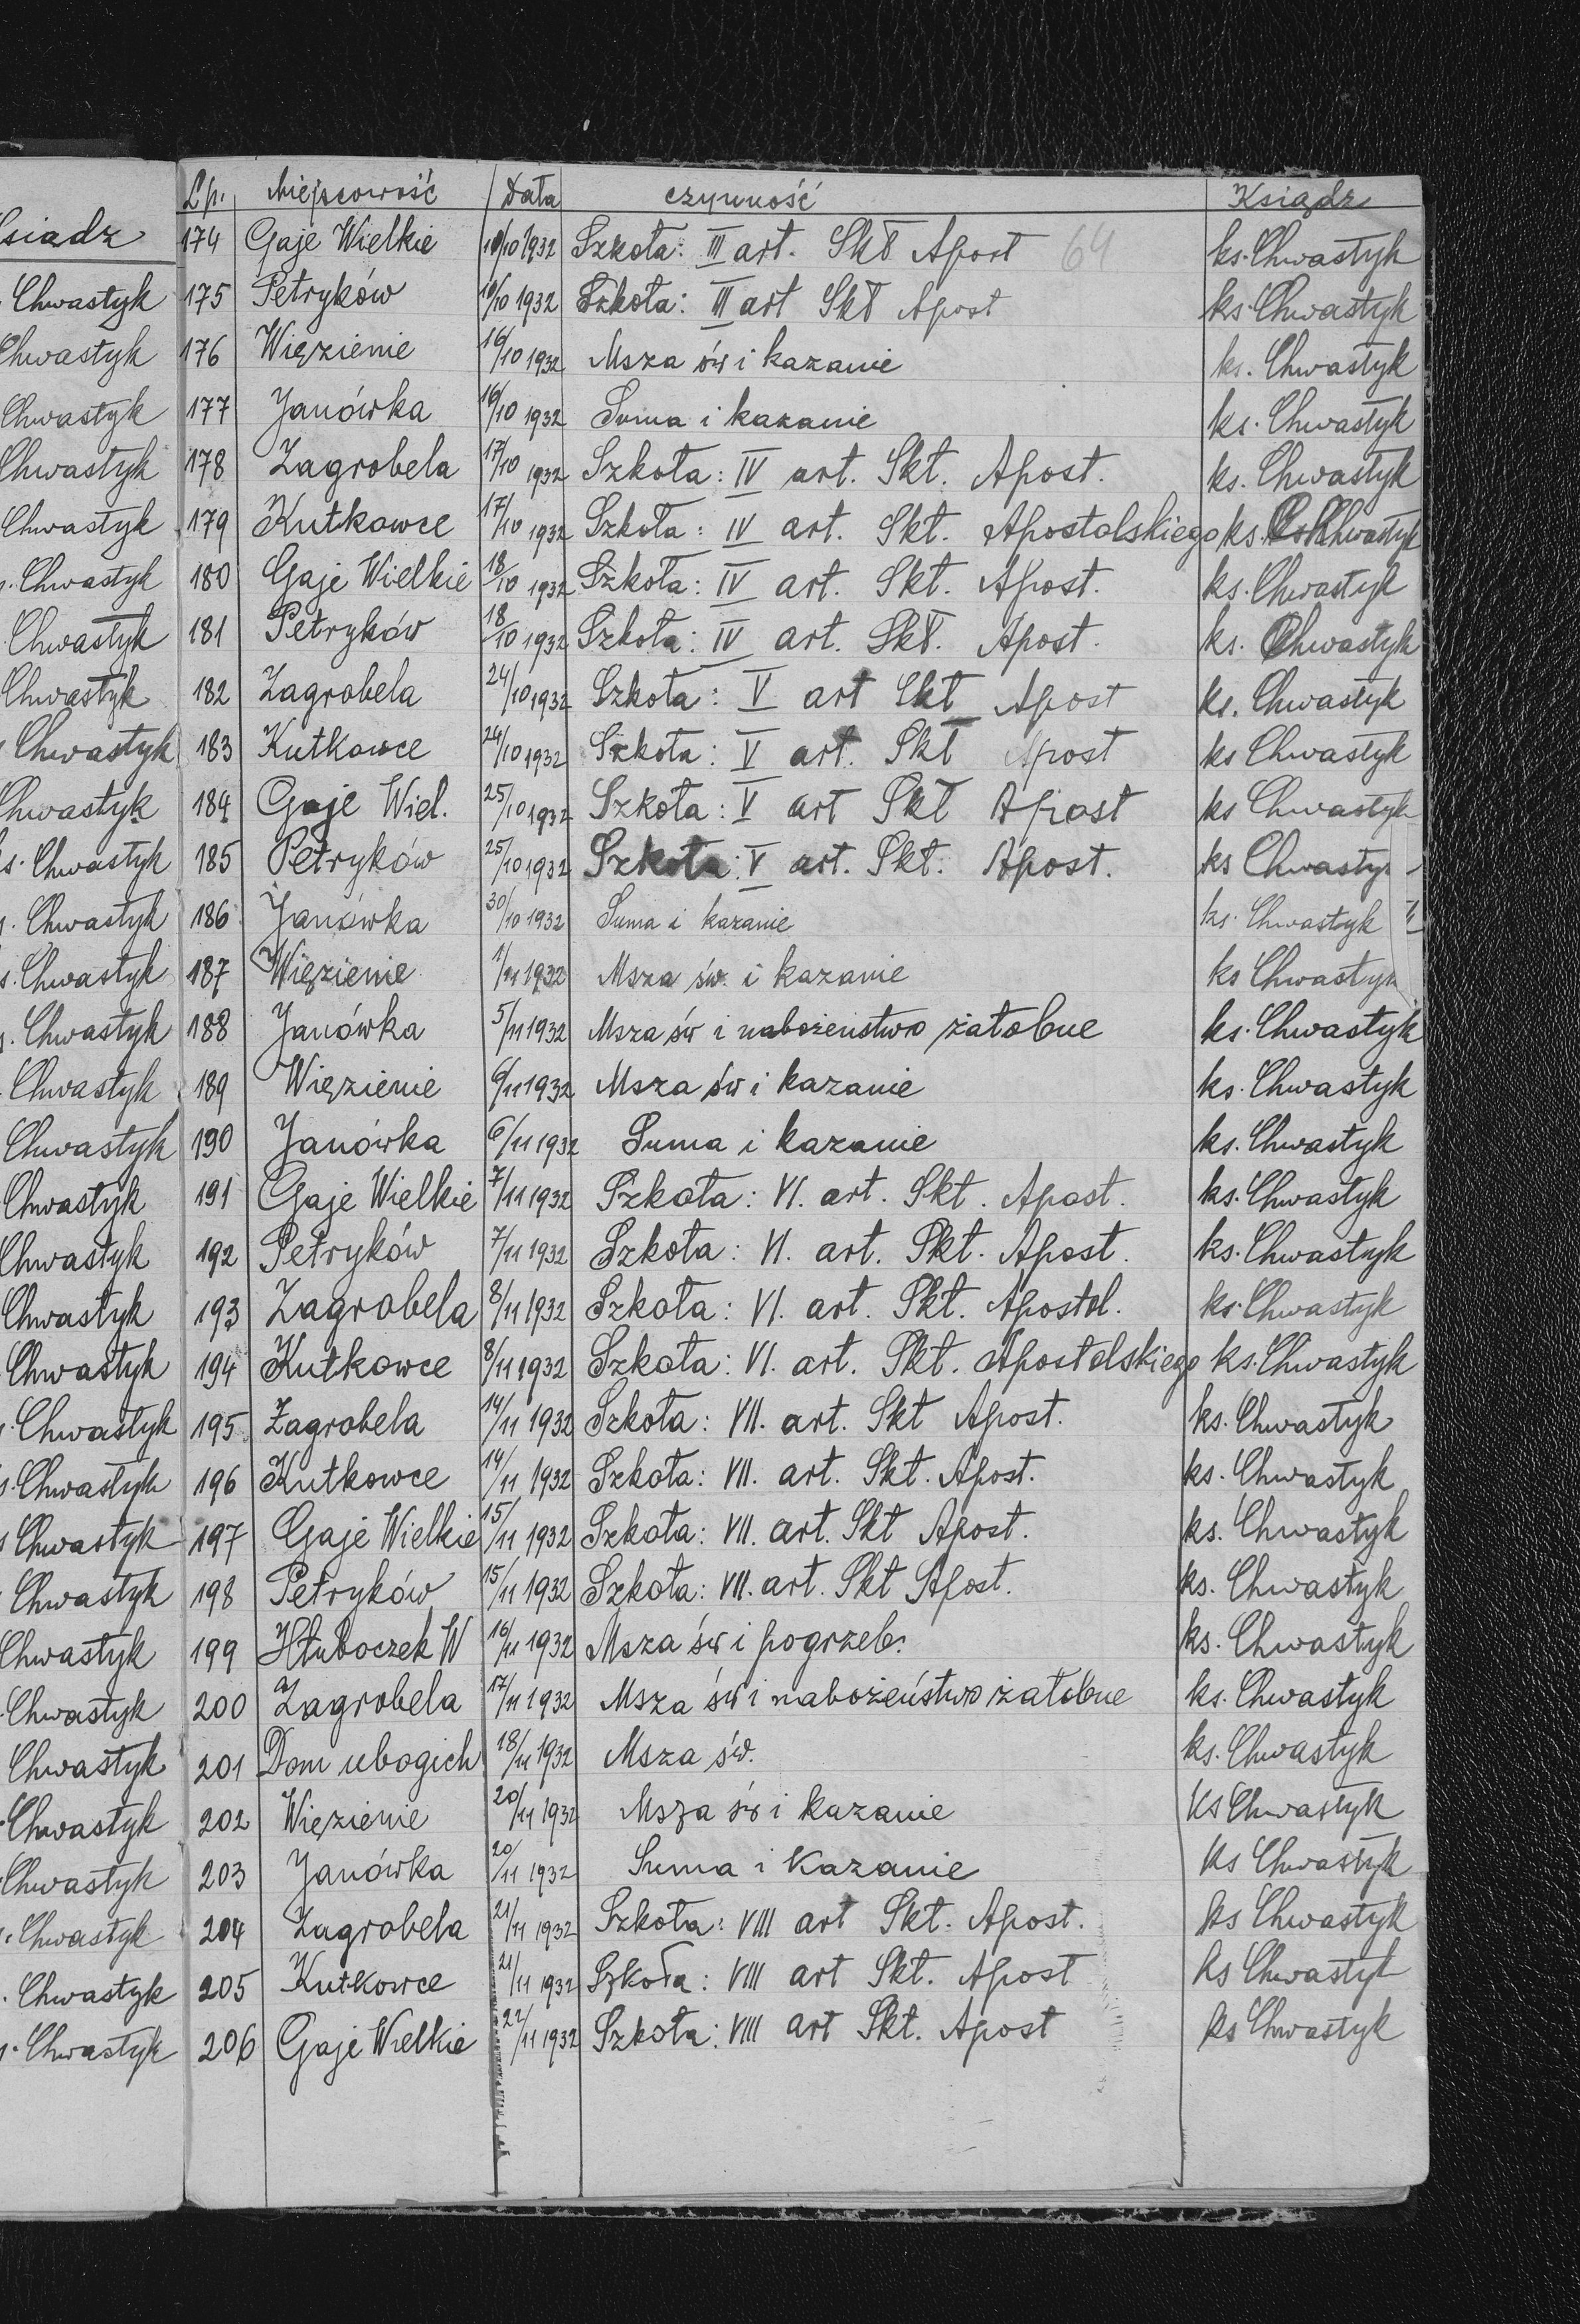 Lp. Miejscowość Data czynność Ksiądz
174 Gaje Wielkie 10/10 1932 Szkoła: III art. Skł Apost 64 ks. Chwastyk
175 Petryków 10/10 1932 Szkoła: III art Skł Apost ks Chwastyk
176 Więzienie 16/10 1932 Msza św i kazanie ks. Chwastyk
177 Janówka 16/10 1932 Suma i kazanie ks. Chwastyk
178 Zagrobela 17/10 1932 Szkoła: IV art. Skł. Apost. ks. Chwastyk
179 Kutkowce 17/10 1932 Szkoła: IV art. Skł. Apostolskiego ks. Chwastyk
180 Gaje Wielkie 18/10 1932 Szkoła: IV art. Skł. Apost. ks. Chwastyk
181 Petryków 18/10 1932 Szkoła: IV art. Skł. Apost. ks. Chwastyk
182 Zagrobela 24/10 1932 Szkoła: V art Skł Apost ks. Chwastyk
183 Kutkowce 24/10 1932 Szkoła: V art. Skł Apost ks Chwastyk
184 Gaje Wiel. 25/10 1932 Szkoła: V art Skł Apost ks Chwastyk
185 Petryków 25/10 1932 Szkoła: V art. Skł. Apost. ks Chwastyk
186 Janówka 30/10 1932 Suma i kazanie ks. Chwastyk
187 Więzienie 1/11 1932 Msza św. i kazanie ks Chwastyk
188 Janówka 5/11 1932 Msza św i nabożeństwo żałobne ks. Chwastyk
189 Więzienie 6/11 1932 Msza św i kazanie ks. Chwastyk
190 Janówka 6/11 1932 Suma i kazanie ks. Chwastyk
191 Gaje Wielkie 7/11 1932 Szkoła: VI. art. Skł. Apost. ks. Chwastyk
192 Petryków 7/11 1932 Szkoła: VI. art. Skł. Apost. ks. Chwastyk
193 Zagrobela 8/11 1932 Szkoła: VI. art. Skł. Apostol. ks. Chwastyk
194 Kutkowce 8/11 1932 Szkoła: VI. art. Skł. Apostolskiego ks. Chwastyk
195 Zagrobela 14/11 1932 Szkoła: VII. art. Skł Apost. ks. Chwastyk
196 Kutkowce 14/11 1932 Szkoła: VII. art. Skł. Apost. ks. Chwastyk
197 Gaje Wielkie 15/11 1932 Szkoła: VII. art. Skł Apost. ks. Chwastyk
198 Petryków 15/11 1932 Szkoła: VII. art. Skł Apost. ks. Chwastyk
199 Hłuboczek W 16/11 1932 Msza św i pogrzeb. ks. Chwastyk
200 Zagrobela 17/11 1932 Msza św i nabożeństwo żałobne ks. Chwastyk
201 Dom ubogich 18/11 1932 Msza św. ks. Chwastyk
202 Więzienie 20/11 1932 Msza św i kazanie ks Chwastyk
203 Janówka 20/11 1932 Suma i Kazanie ks Chwastyk
204 Zagrobela 21/11 1932 Szkoła: VIII art Skł. Apost. ks Chwastyk
205 Kutkowce 21/11 1932 Szkoła: VIII art Skł. Apost ks Chwastyk
206 Gaje Wielkie 22/11 1932 Szkoła: VIII art Skł. Apost ks Chwastyk